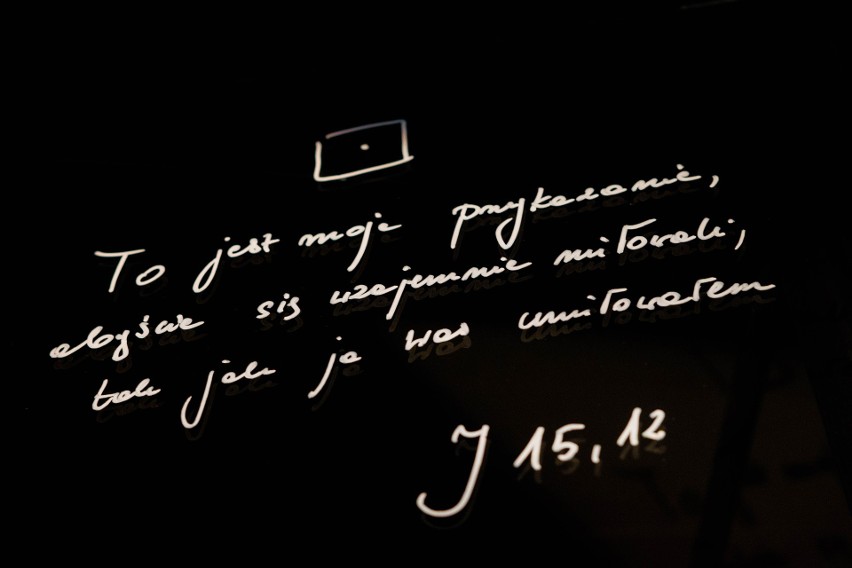 To jest moje przykazanie,
abyście się wzajemnie miłowali,
tak jak ja was umiłowałem
J 15,12